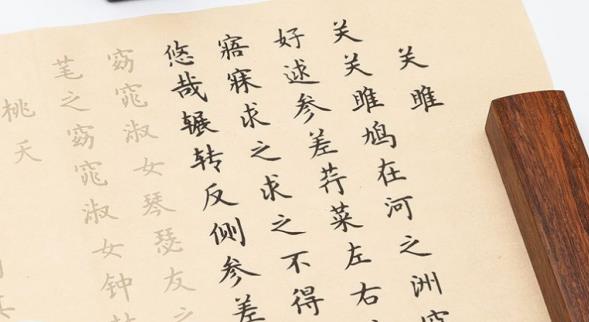 关雎
关关雎鸠在河之洲窈
好逑参差荇菜左右
寤寐求之求之不得
悠哉辗转反侧参差
窈窕淑女琴瑟友之
芼之窈窕淑女钟
桃夭